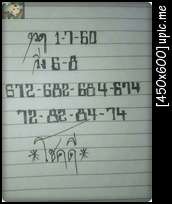 1-7-60
6-8
672-682-684-674
72-82-84-74
*โชคดี*
[450x600] upic.me